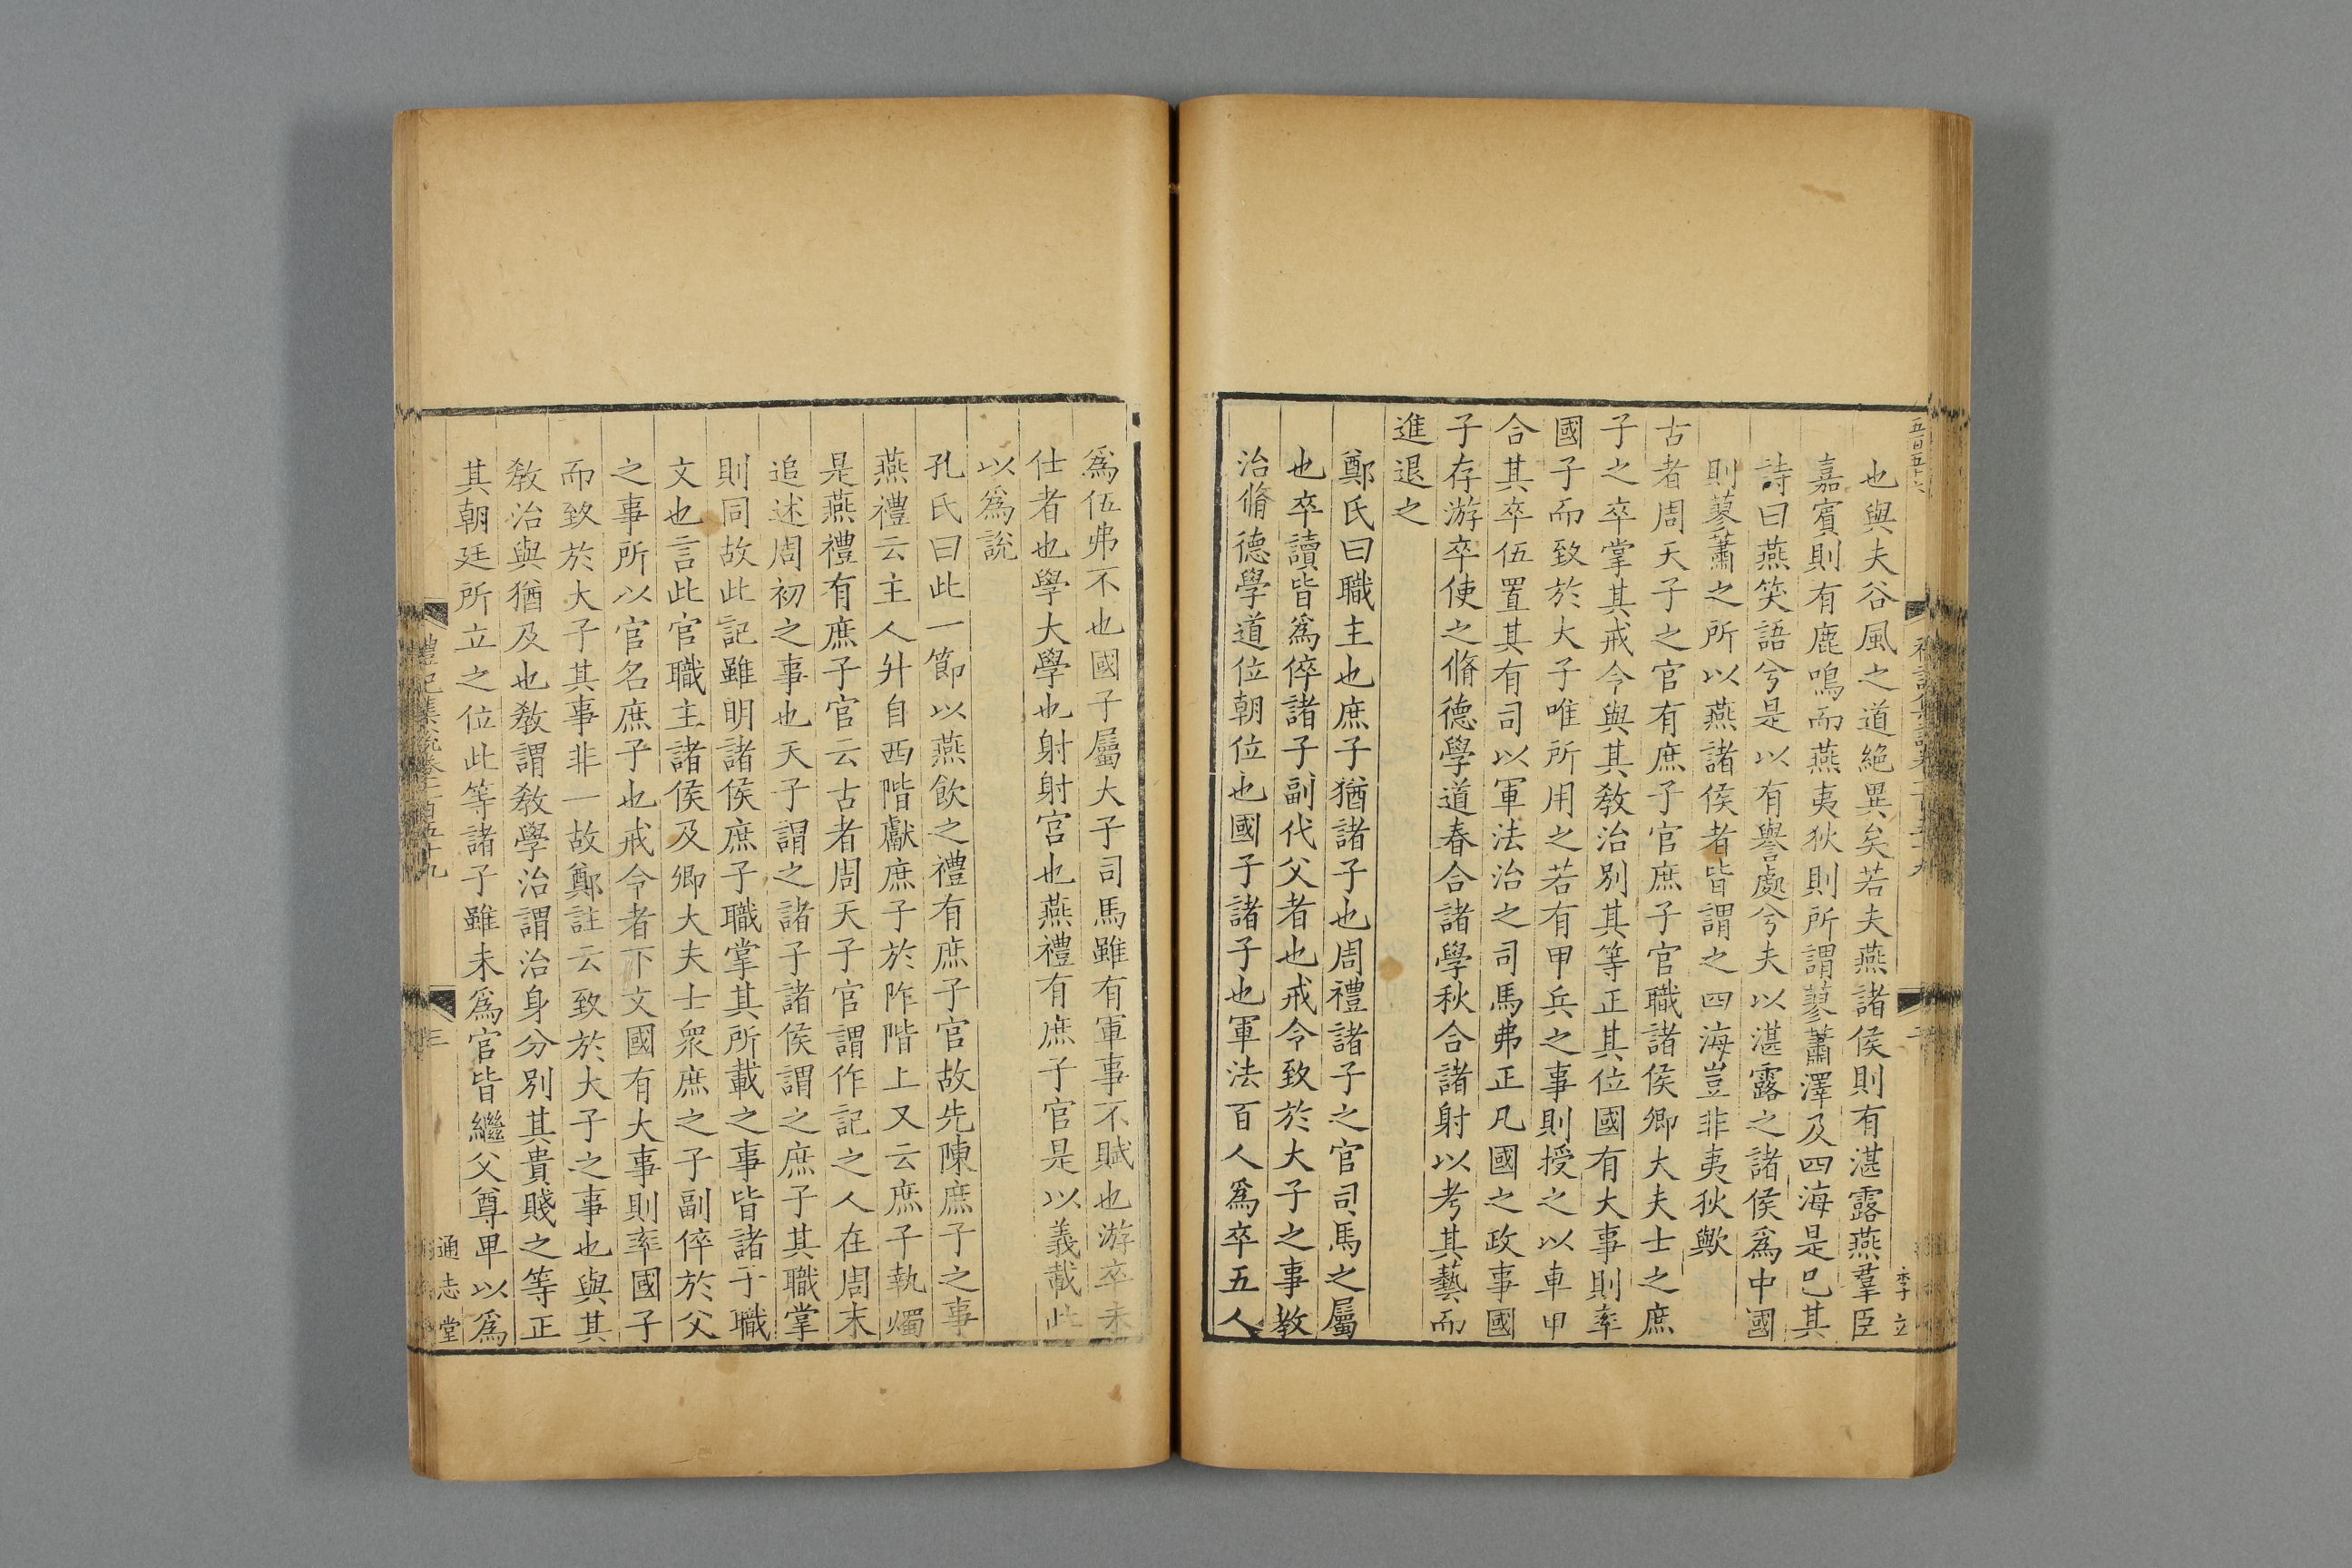 五百五十六
也與夫谷風之道絕異矣若夫燕諸侯則有湛露燕羣臣
嘉賓則有鹿鳴而燕夷狄則所謂蓼蕭澤及四海是已其
詩曰燕笑語兮是以有譽處兮夫以湛露之諸侯爲中國
則蓼蕭之所以燕諸侯者皆謂之四海豈非夷狄歟
古者周天子之官有庶子官庶子官職諸侯卿大夫士之庶
子之卒掌其戒令與其敎治別其等正其位國有大事則率
國子而致於大子唯所用之若有甲兵之事則授之以車甲
合其卒伍置其有司以軍法治之司馬弗正凡國之政事國
子存游卒使之脩德學道春合諸學秋合諸射以考其藝而
進退之
鄭氏曰職主也庶子猶諸子也周禮諸子之官司馬之屬
也卒讀皆爲倅諸子副代父者也戒令致於大子之事教
治脩德學道位朝位也國子諸子也軍法百人爲卒五人
李立
爲伍弗不也國子屬大子司馬雖有軍事不賦也游卒未
仕者也學大學也射射宮也燕禮有庶子官是以義載此
以爲說
孔氏曰此一節以燕飲之禮有庶子官故先陳庶子之事
燕禮云主人升自西階獻庶子於阼階上又云庶子執燭
是燕禮有庶子官云古者周天子官謂作記之人在周末
追述周初之事也天子謂之諸子諸侯謂之庶子其職掌
則同故此記雖明諸侯庶子職掌其所載之事皆諸子職
文也言此官職主諸侯及卿大夫士衆庶之子副倅於父
之事所以官名庶子也戒令者下文國有大事則率國子
而致於大子其事非一故鄭註云致於大子之事也與其
敎治與猶及也敎謂敎學治謂治身分別其貴賤之等正
其朝廷所立之位此等諸子雖未爲官皆繼父尊卑以爲
禮記集說卷一百五十九
三
通志堂